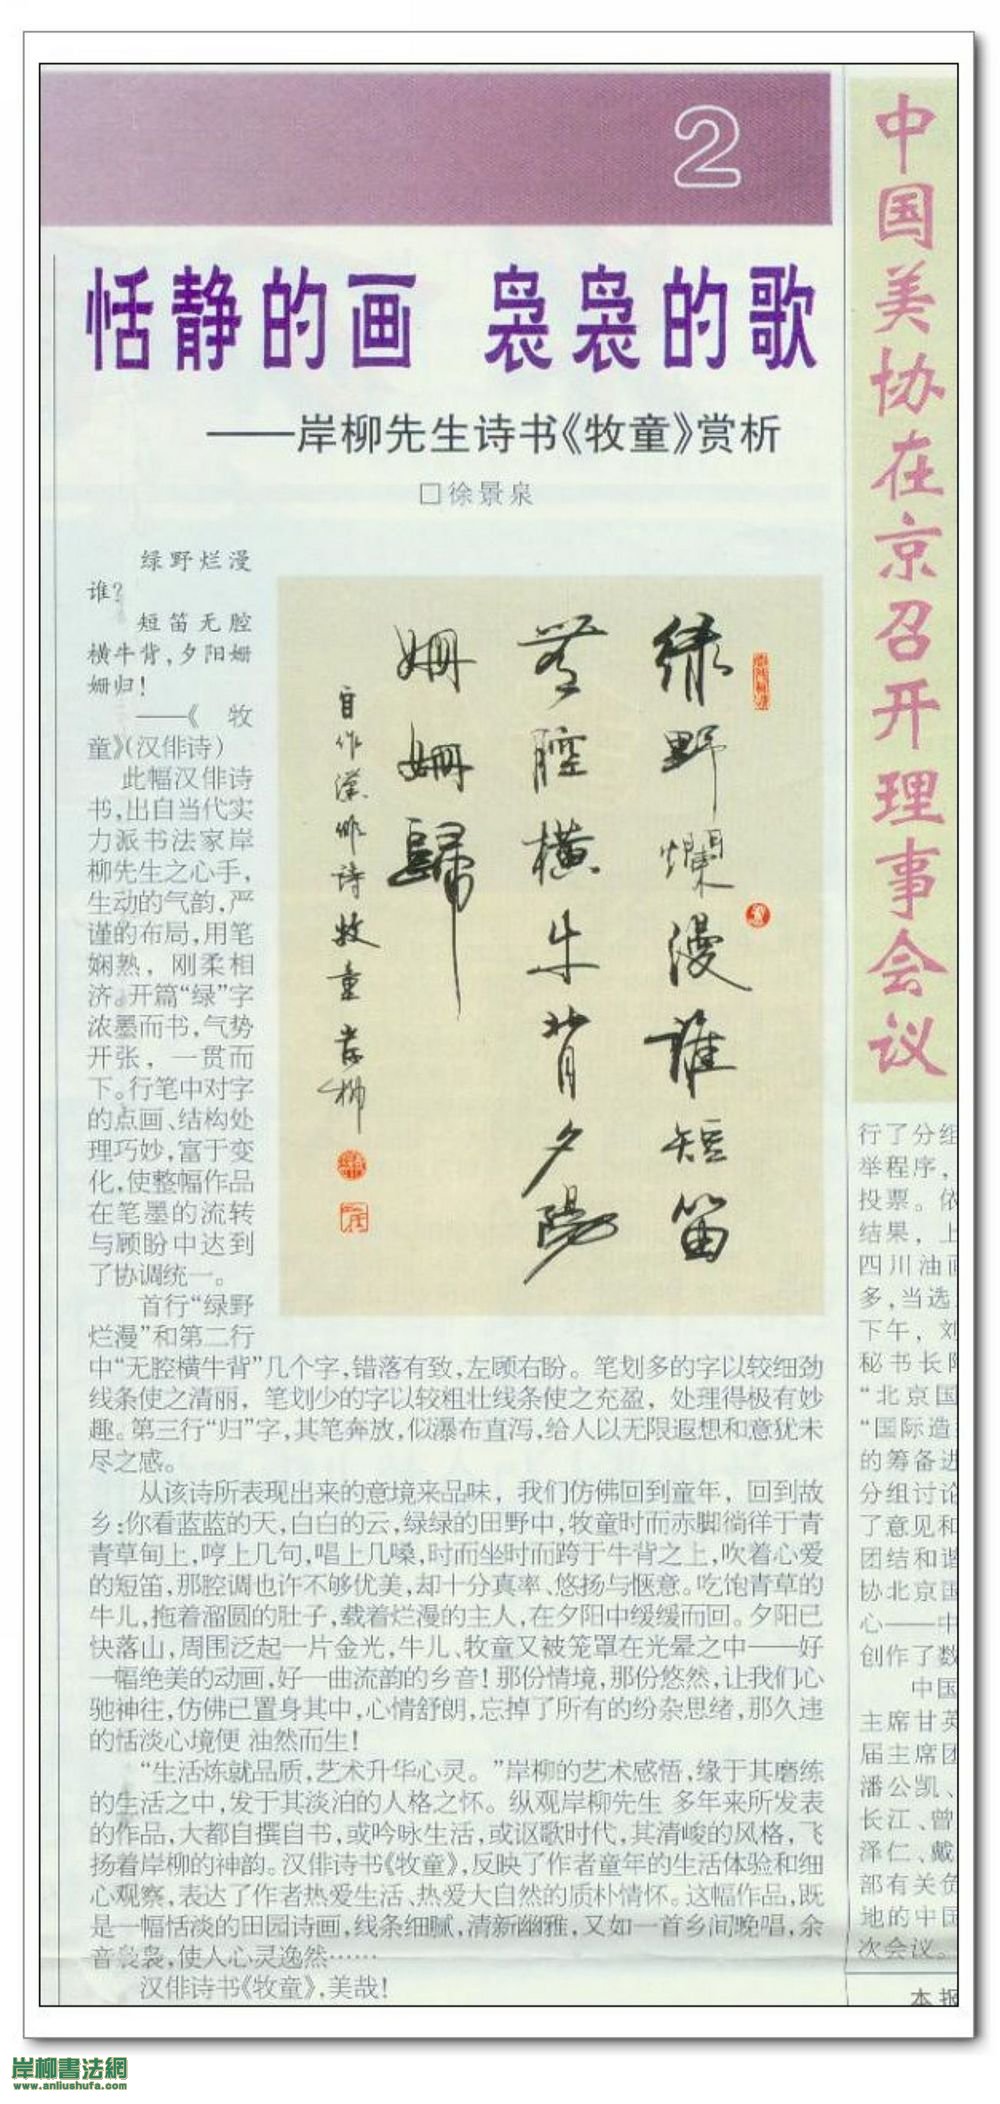 2
恬静的画 袅袅的歌
——岸柳先生诗书《牧童》赏析
□徐景泉
绿野烂漫
谁?
短笛无腔
横牛背,夕阳姗
姗归!
——《牧
童》(汉俳诗)
此幅汉俳诗
书,出自当代实
力派书法家岸
柳先生之心手,
生动的气韵,严
谨的布局,用笔
娴熟,刚柔相
济。开篇“绿”字
浓墨而书,气势
开张,一贯而
下。行笔中对字
的点画、结构处
理巧妙,富于变
化,使整幅作品
在笔墨的流转
与顾盼中达到
了协调统一。
首行“绿野
烂漫”和第二行
中“无腔横牛背”几个字,错落有致,左顾右盼。笔划多的字以较细劲
线条使之清丽,笔划少的字以较粗壮线条使之充盈,处理得极有妙
趣。第三行“归”字,其笔奔放,似瀑布直泻,给人以无限遐想和意犹未
尽之感。
从该诗所表现出来的意境来品味,我们仿佛回到童年,回到故
乡:你看蓝蓝的天,白白的云,绿绿的田野中,牧童时而赤脚徜徉于青
青草甸上,哼上几句,唱上几嗓,时而坐时而跨于牛背之上,吹着心爱
的短笛,那腔调也许不够优美,却十分真率、悠扬与惬意。吃饱青草的
牛儿,拖着溜圆的肚子,载着烂漫的主人,在夕阳中缓缓而回。夕阳已
快落山,周围泛起一片金光,牛儿、牧童又被笼罩在光晕之中——好
一幅绝美的动画,好一曲流韵的乡音!那份情境,那份悠然,让我们心
驰神往,仿佛已置身其中,心情舒朗,忘掉了所有的纷杂思绪,那久违
的恬淡心境便 油然而生!
“生活炼就品质,艺术升华心灵。”岸柳的艺术感悟,缘于其磨练
的生活之中,发于其淡泊的人格之怀。纵观岸柳先生 多年来所发表
的作品,大都自撰自书,或吟咏生活,或讴歌时代,其清峻的风格,飞
扬着岸柳的神韵。汉俳诗书《牧童》,反映了作者童年的生活体验和细
心观察,表达了作者热爱生活、热爱大自然的质朴情怀。这幅作品,既
是一幅恬淡的田园诗画,线条细腻,清新幽雅,又如一首乡间晚唱,余
音袅袅,使人心灵逸然……
汉俳诗书《牧童》,美哉!
綠野爛漫誰短笛
無腔橫牛背夕陽
姍姍歸
自作漢俳詩牧童岸柳
中国美协在京召开理事会议
行了分组
举程序,
投票。依
结果,上
四川油画
多,当选
下午,刘
秘书长陶
“北京国
“国际造
的筹备进
分组讨论
了意见和
团结和谐
协北京国
心——中
创作了数
中国
主席甘英
届主席团
潘公凯、
长江、曾
泽仁、戴
部有关负
地的中国
次会议。
本报
岸柳書法網
www.anliushufa.com